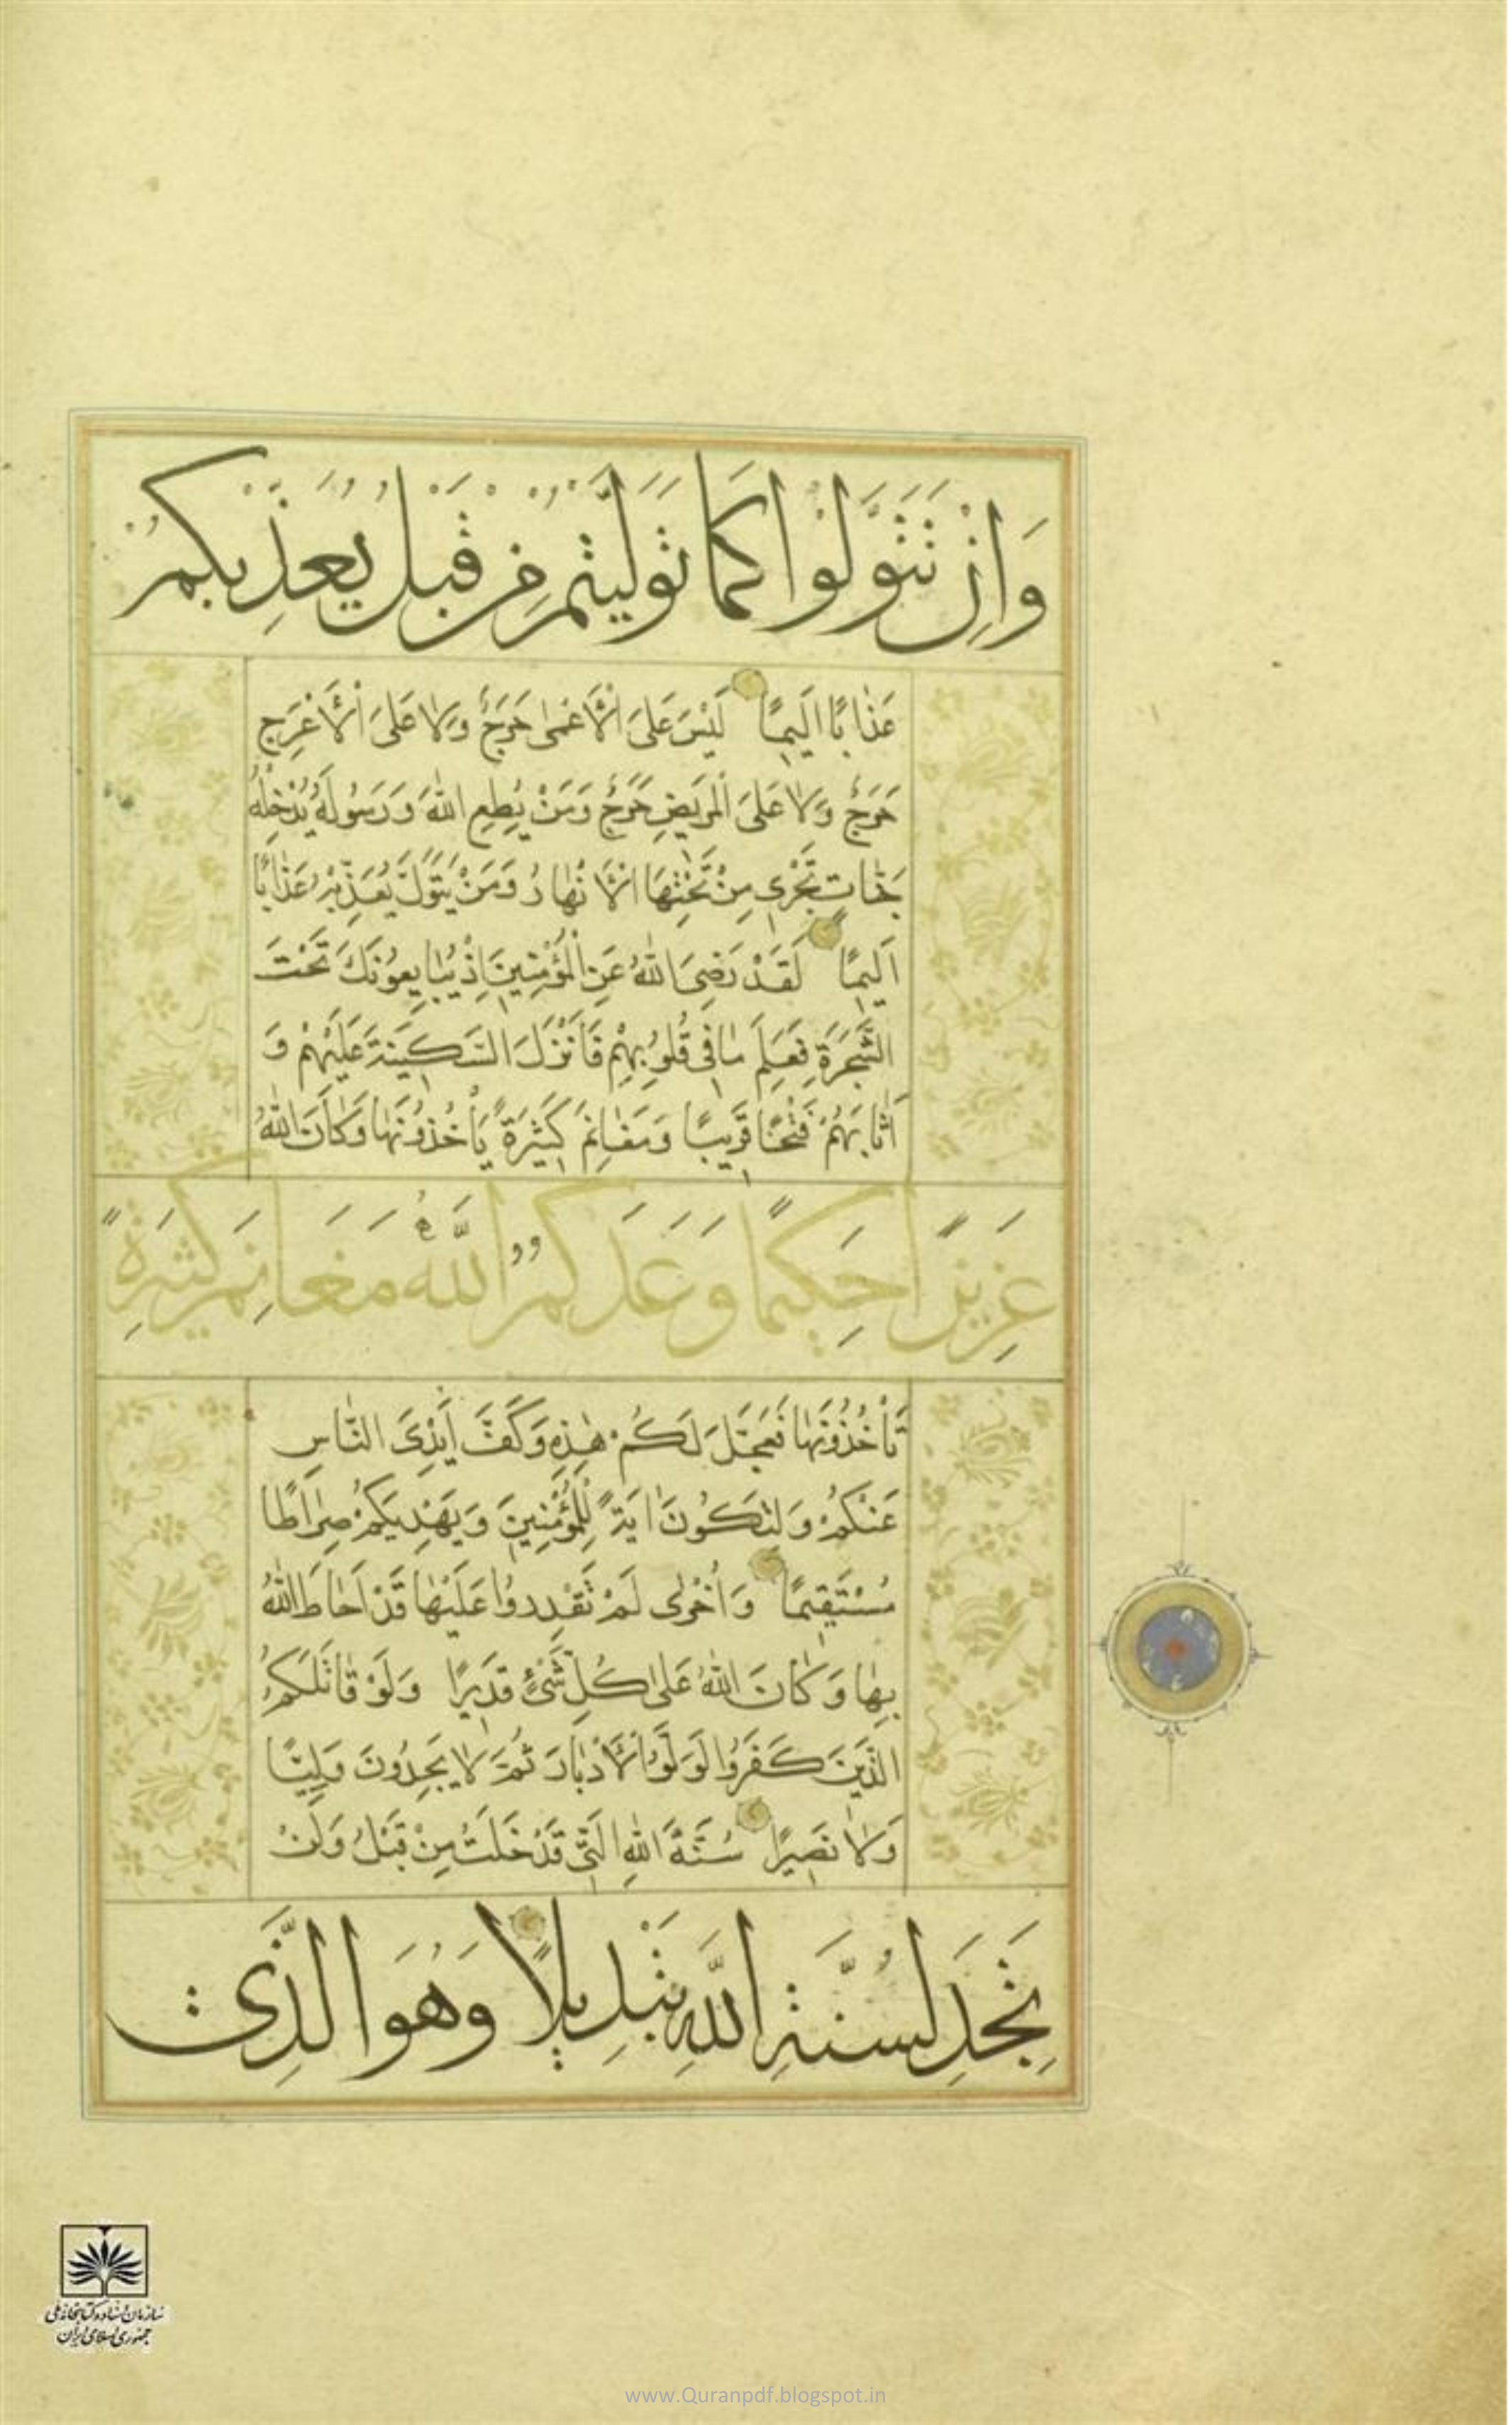 وَاِنْ تَتَوَلَّوْا كَمَا تَوَلَّيْتُمْ مِنْ قَبْلُ يُعَذِّبْكُمْ
عَذَابًا اَلِيمًا لَيْسَ عَلَى الْاَعْمٰى حَرَجٌ وَلَا عَلَى الْاَعْرَجِ
حَرَجٌ وَلَا عَلَى الْمَرِيضِ حَرَجٌ وَمَنْ يُطِعِ اللّٰهَ وَرَسُولَهُ يُدْخِلْهُ
جَنَّاتٍ تَجْرِي مِنْ تَحْتِهَا الْاَنْهَارُ وَمَنْ يَتَوَلَّ يُعَذِّبْهُ عَذَابًا
اَلِيمًا لَقَدْ رَضِيَ اللّٰهُ عَنِ الْمُؤْمِنِينَ اِذْ يُبَايِعُونَكَ تَحْتَ
الشَّجَرَةِ فَعَلِمَ مَا فِي قُلُوبِهِمْ فَاَنْزَلَ السَّكِينَةَ عَلَيْهِمْ وَ
اَثَابَهُمْ فَتْحًا قَرِيبًا وَمَغَانِمَ كَثِيرَةً يَأْخُذُونَهَا وَكَانَ اللّٰهُ
عَزِيزًا حَكِيمًا وَعَدَكُمُ اللّٰهُ مَغَانِمَ كَثِيرَةً
تَأْخُذُونَهَا فَعَجَّلَ لَكُمْ هٰذِهِ وَكَفَّ اَيْدِيَ النَّاسِ
عَنْكُمْ وَلِتَكُونَ اٰيَةً لِلْمُؤْمِنِينَ وَيَهْدِيَكُمْ صِرَاطًا
مُسْتَقِيمًا وَاُخْرٰى لَمْ تَقْدِرُوا عَلَيْهَا قَدْ اَحَاطَ اللّٰهُ
بِهَا وَكَانَ اللّٰهُ عَلٰى كُلِّ شَيْءٍ قَدِيرًا وَلَوْ قَاتَلَكُمُ
الَّذِينَ كَفَرُوا لَوَلَّوُا الْاَدْبَارَ ثُمَّ لَا يَجِدُونَ وَلِيًّا
وَلَا نَصِيرًا سُنَّةَ اللّٰهِ الَّتِي قَدْ خَلَتْ مِنْ قَبْلُ وَلَنْ
تَجِدَ لِسُنَّةِ اللّٰهِ تَبْدِيلًا وَهُوَ الَّذِي
سازمان اسناد و کتابخانه ملی
جمهوری اسلامی ایران
www.Quranpdf.blogspot.in